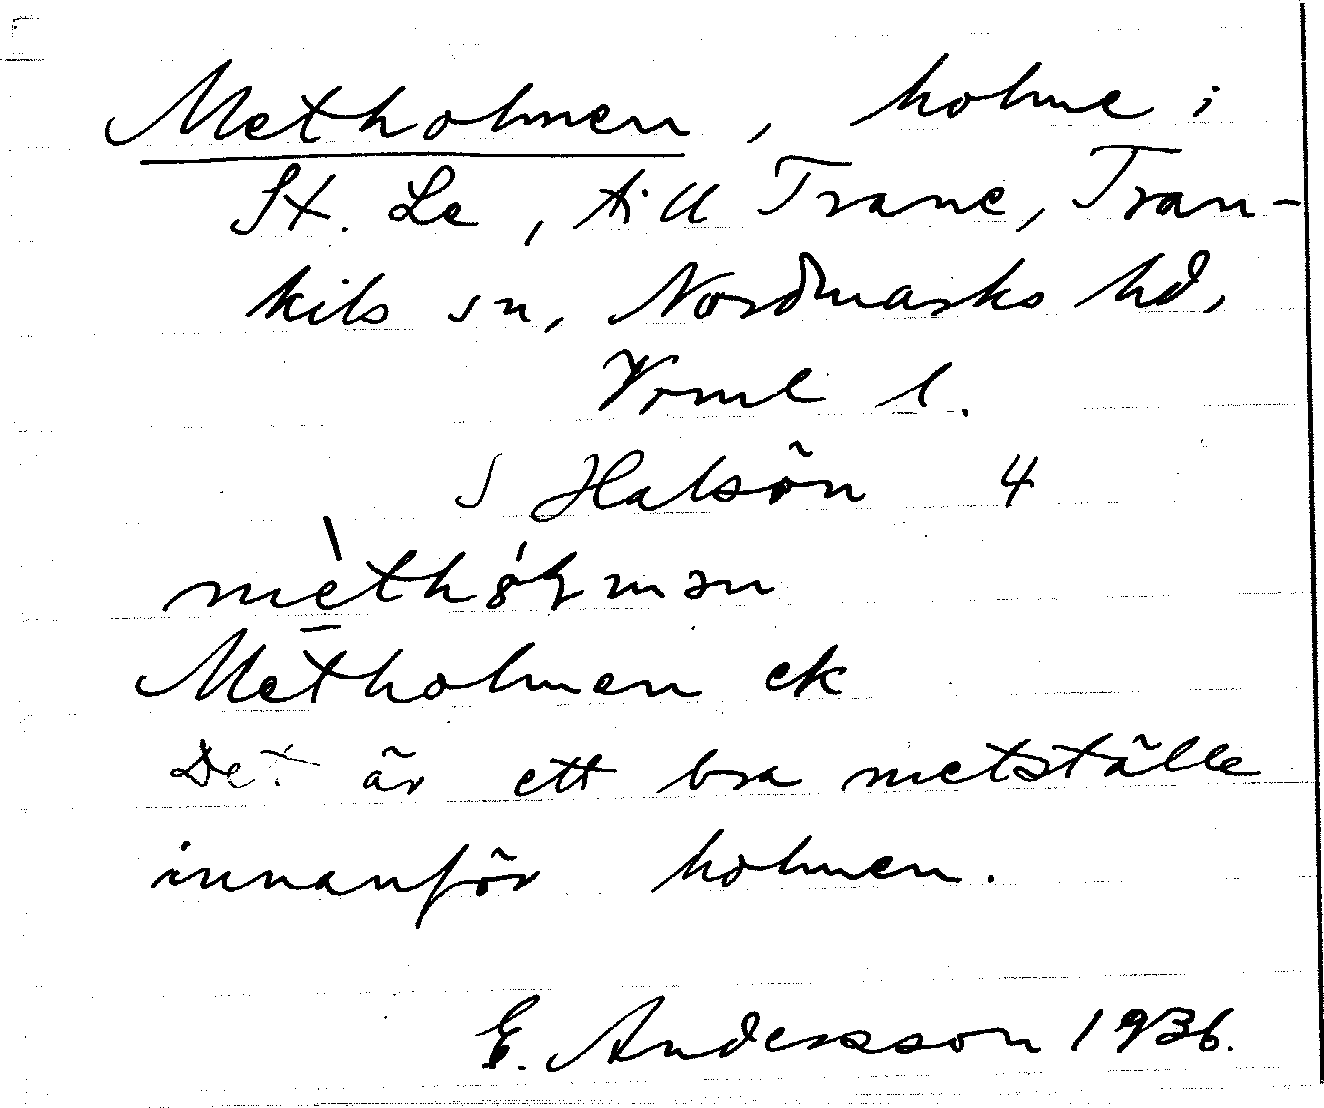 Metholmen, holme i
St. Le, till Trane, Tran-
kils sn, Nordmarks hd,
Vrml l.
S Halsön 4
Metholmen ek
Det är ett bra metställe
innanför holmen.
E. Andersson 1936.